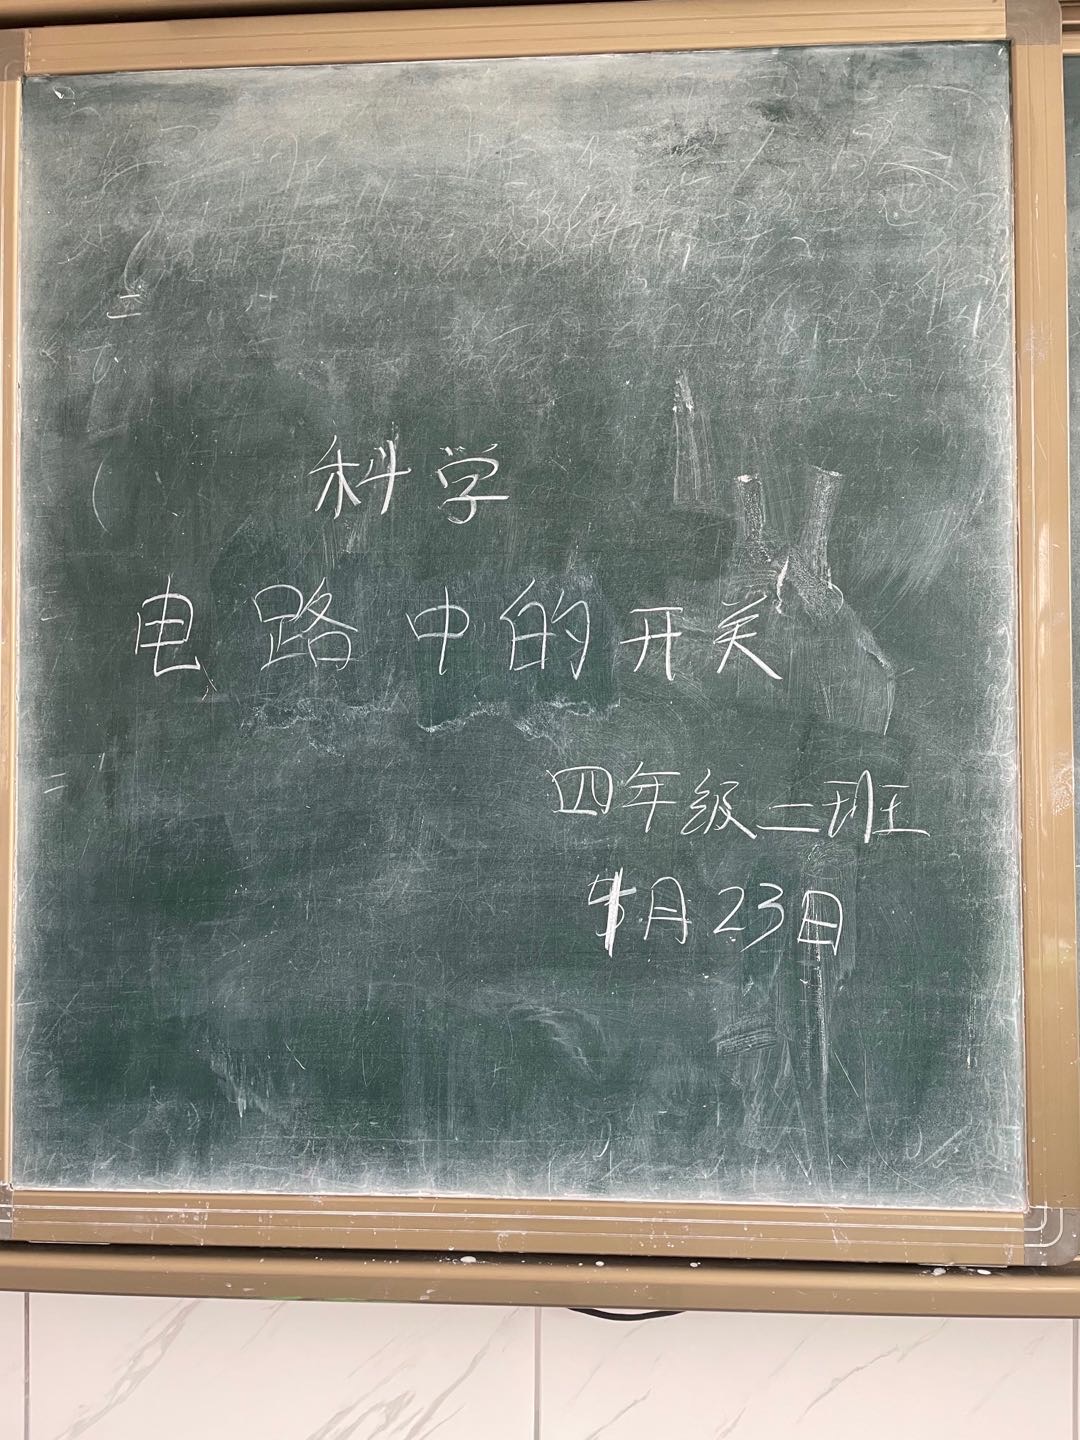 科学
电路中的开关
四年级二班
月23日